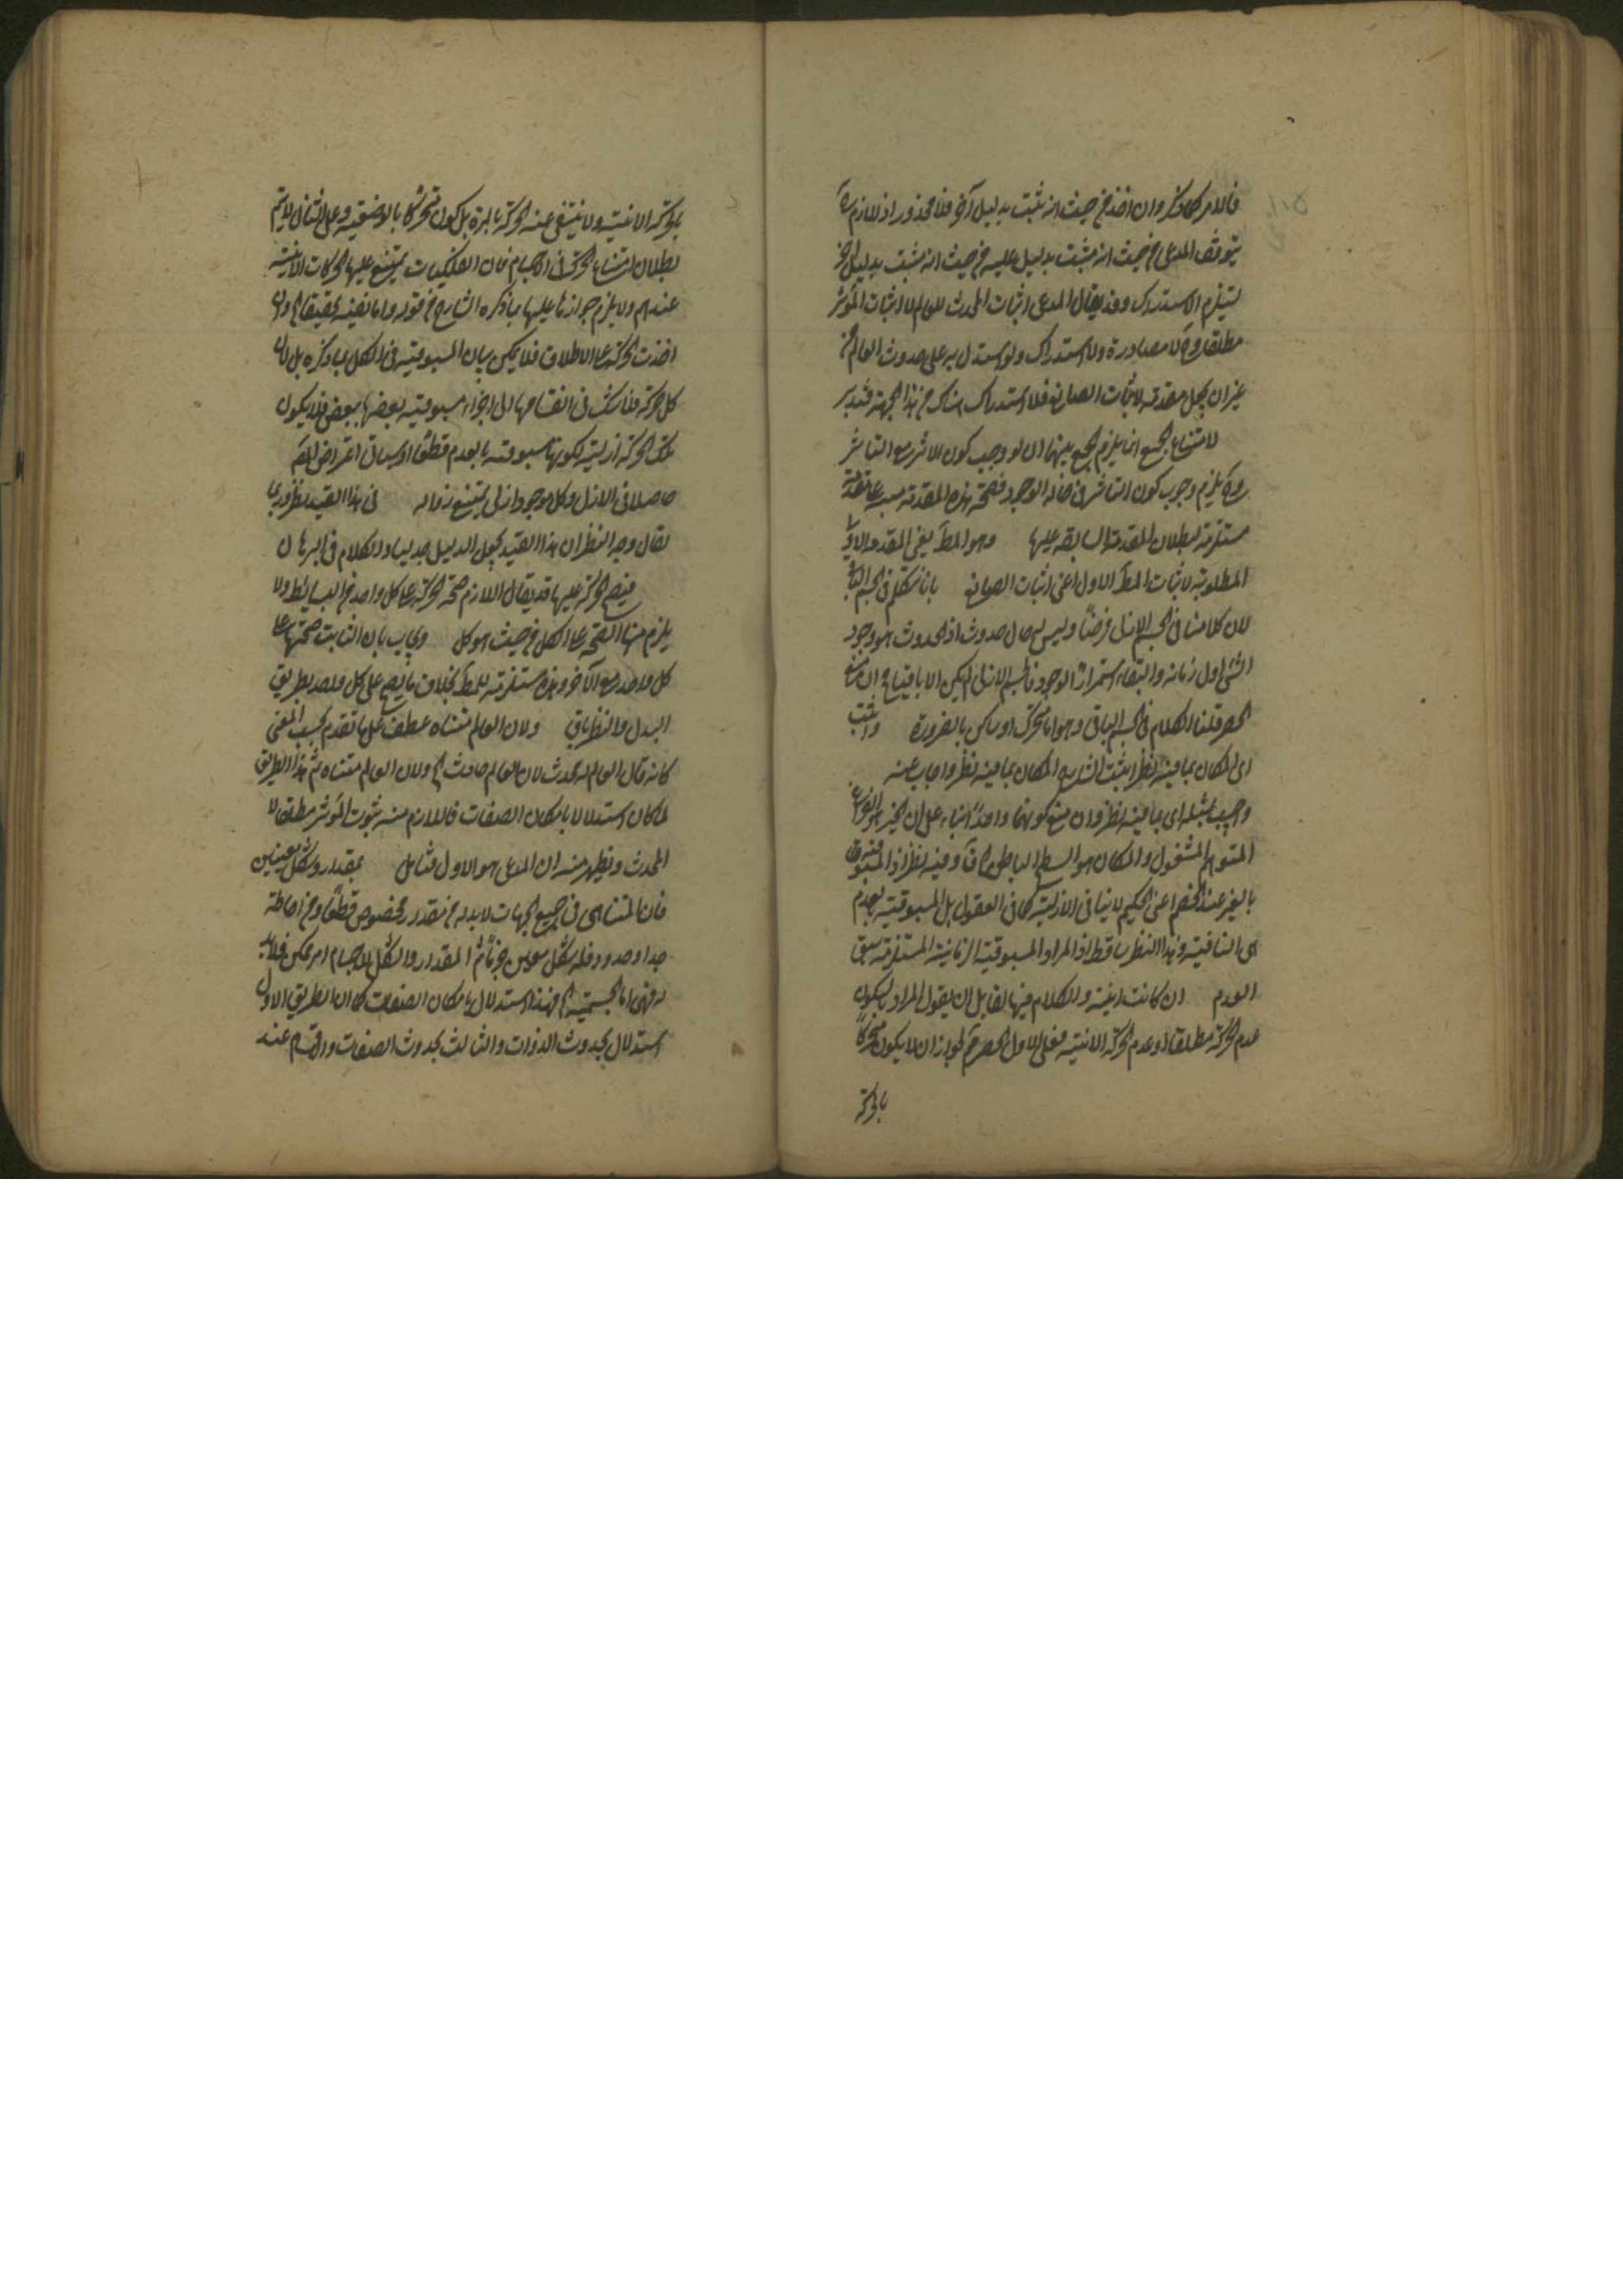 فالامر كما ذكر وان اخذ من حيث انه يثبت بدليل آخر فلا محذور اذ اللازم ح
يتوقف المدعى من حيث انه مثبت بدليل عليه من حيث انه يثبت بدليل آخر
يستلزم الاستدراك وقد يقال المدعى اثبات المحدث للعالم لا اثبات المؤثر
مطلقا وح لا مصادرة ولا استدراك ولو استدل به على حدوث العالم من
غير ان يجعل مقدمة لاثبات الصانع فلا استدراك هناك من هذه الجهة فتدبر
لامتناع الجمع انما يلزم الجمع بينهما ان لو وجب كون الاثر مع التاثير
وح يلزم وجوب كون التاثير في حالة الوجود فصحة هذه المقدمة
مستلزمة لبطلان المقدمة السابقة عليها وهو المط يعني المقدمة الاولى
المطلوبة لاثبات المط الاول اعني اثبات الصانع بانا نتكلم في الجسم الباقي
لان كلامنا في الجسم الازلي فرضا وليس له حال حدوث اذ الحدوث هو وجود
الشئ اول زمانه والبقاء استمرار الوجود فالجسم الازلي لم يكن الا باقيا
الحصر قلنا الكلام في الجسم الباقي وهو اما متحرك او ساكن بالضرورة واثبت
اي المكان بما فيه نظر اثبت الشارح المكان بما فيه نظر واجاب عنه
واجيب بمثله اي بما فيه نظر وان منع كونهما واحدا بناء على ان الحيز هو الفراغ
المتوهم المشغول والمكان هو السطح الباطن وفيه نظر اذ المسبوقية
بالغير عند الخصم اعني الحكيم لا ينافي الازلية كما في العقول بل المسبوقية بالعدم
هي المنافية وهذا النظر ساقط اذ المراد المسبوقية الزمانية المستلزمة سبق
العدم ان كانت اينية والكلام فيها لقايل ان يقول المراد بالسكون
عدم الحركة مطلقا او عدم الحركة الاينية فعلى الاول الحصر مم لجواز ان لا يكون متحركا
بالحركة
بالحركة الاينية ولا ينتفي عنه الحركة بالمرة بل كون متحركا بالوضعية وعلى الثاني لا يتم
بطلان امتناع الحركة في الاجسام فان الفلكيات يمتنع عليها الحركات الاينية
عندهم ولا يلزم جوازها عليها بما ذكره الشارح من قوله واما نفيه تحقيقا وان
اخذت الحركة على الاطلاق فلا يمكن بيان المسبوقية في الكل بما ذكره بل لان
كل حركة فلا شك في انقسامها الى اجزاء مسبوقية بعضها ببعض فلا يكون
تلك الحركة ازلية لكونها مسبوقة بالعدم قطعا وسياتي اعتراض المص
حاصلا في الازل وكل موجود ازلي يمتنع زواله في هذا القيد نظر وربما
يقال وجه النظر ان هذا القيد يجعل الدليل جدليا والكلام في البرهان
فيصح الحركة عليها قد يقال اللازم صحة الحركة على كل واحد من البسائط ولا
يلزم منها الصحة على الكل من حيث هو كل ويجاب بان الثابت صحتها على
كل واحد مع الآخر وهذه مستلزمة للمط بخلاف ما يصح على كل واحد بطريق
البدل والنظر باق ولان العالم متناه عطف على ما تقدم بحسب المعنى
كانه قال العالم له محدث لان العالم حادث الخ ولان العالم متناه ثم هذا الطريق
لما كان استدلالا بامكان الصفات فاللازم منه ثبوت المؤثر مطلقا لا
المحدث ويظهر منه ان المدعى هو الاول فتامل بمقدار وشكل معينين
فان المتناهي في جميع الجهات لا بد له من مقدار مخصوص قطعا ومن احاطة
حد او حدود فله شكل معين جزما ثم المقدار والشكل للاجسام امر ممكن فلا بد
له فهي اما الجسمية الخ فهذا استدلال بامكان الصفات كما ان الطريق الاول
استدلال بحدوث الذوات والثالث بحدوث الصفات والقسم عند